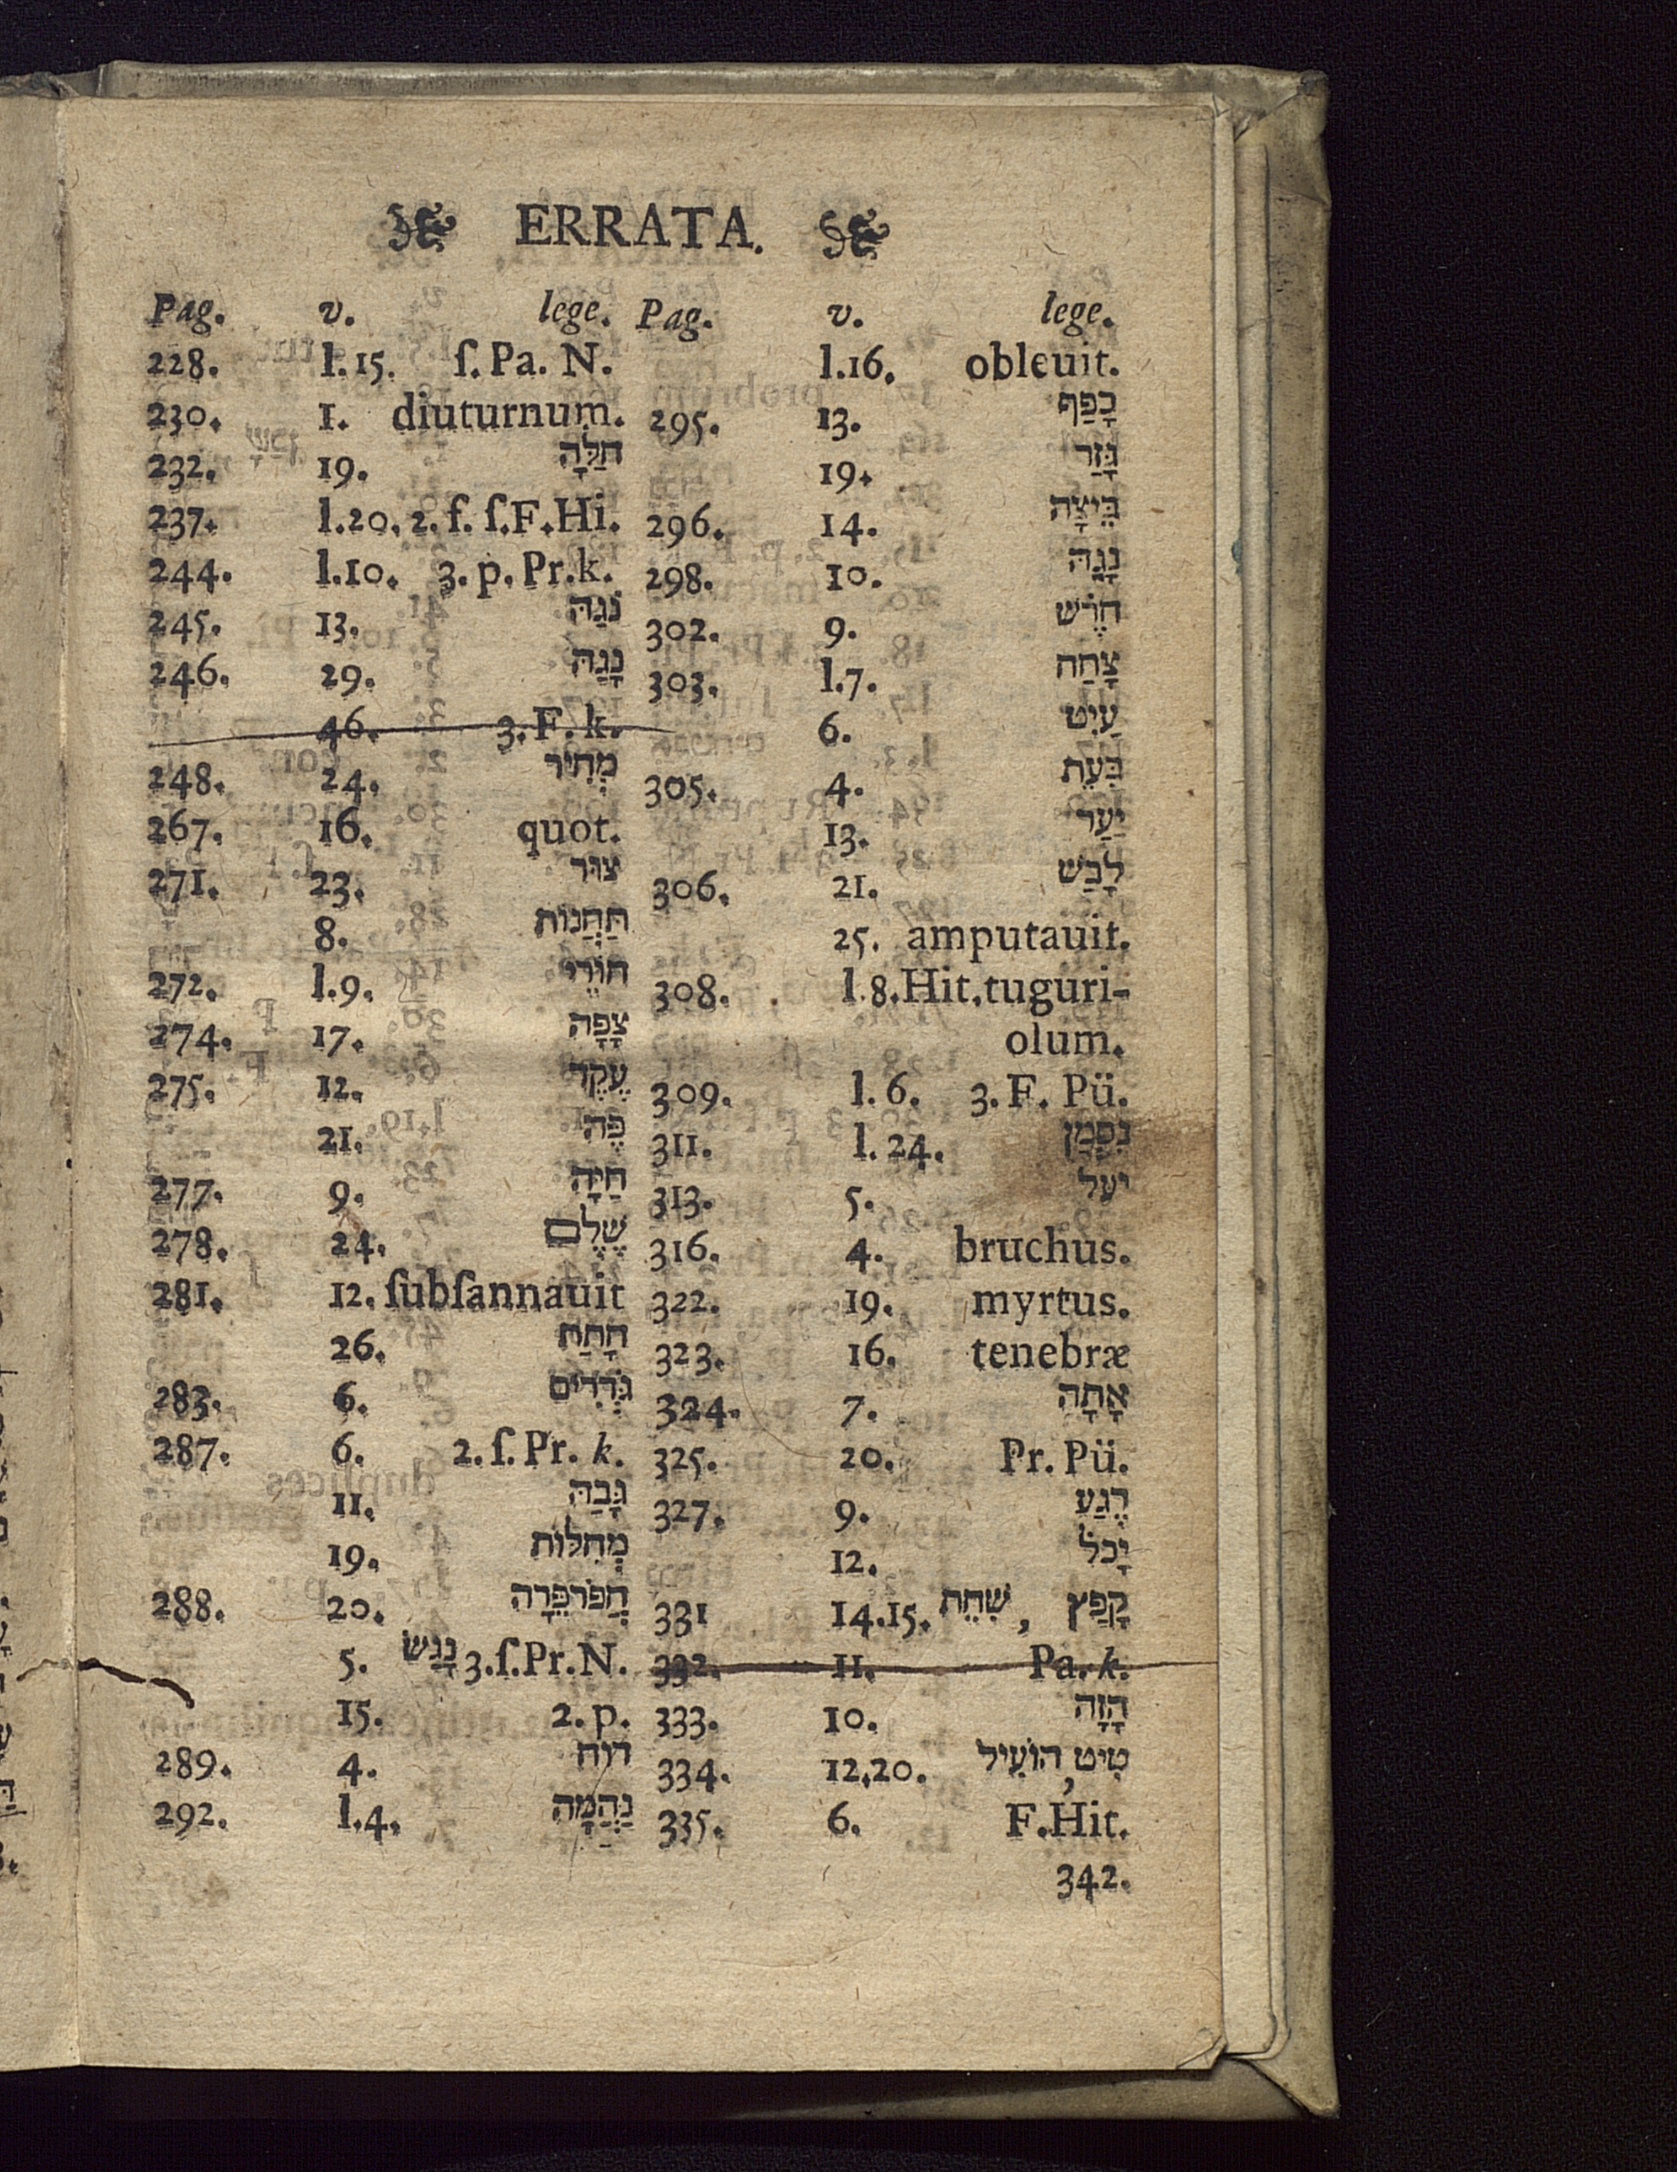 ERRATA.
Pag. v. lege.
228. l. 15. ſ. Pa. N.
230. 1. diuturnum.
232. 19. חַלָּה
237. l. 20. 2. f. ſ. F. Hi.
244. l. 10. 3. p. Pr. k.
245. 13. נֹגַהּ
246. 29. נָגַהּ
46. 3. F. k.
248. 24.
267. 16. quot.
271. 23. צוּר
8.
272. l. 9. חוֹרֵי
274. 17. צָפָה
275. 12. עֶקֶר
21. פֶּה
277. 9. חַיָּה
278. 24. שֶׁלֶם
281. 12. ſubſannauit
26. חָתַת
283. 6.
287. 6. 2. ſ. Pr. k.
11. גָּבַהּ
19. מְחִלּוֹת
288. 20. חֲפֹרפֵּרָה
5. נָגַשׂ 3. ſ. Pr. N.
15. 2. p.
289. 4. דוח
292. l. 4. נְהָמָה
Pag. v. lege.
l. 16. obleuit.
295. 13. כָפַף
19. גָּזַר
296. 14. בֵּיצָה
298. 10. נָגַהּ
302. 9. חֹרֶשׁ
303. l. 7. צָחַח
6. עַיִט
305. 4. בִּעֵת
13. יַעַר
306. 21. לָבַשׁ
25. amputauit.
308. l. 8. Hit. tuguri-
olum.
309. l. 6. 3. F. Pü.
311. l. 24.
313. 5. יעל
316. 4. bruchus.
322. 19. myrtus.
323. 16. tenebræ
324. 7. אָתָה
325. 20. Pr. Pü.
327. 9. רֶגַע
12. יָכֹל
331 14. 15. קָפַץ , שִׁחֵת
332. 11. Pa. k.
333. 10. הָזָה
334. 12. 20. טִיט, הוֹעִיל
335. 6. F. Hit.
342.